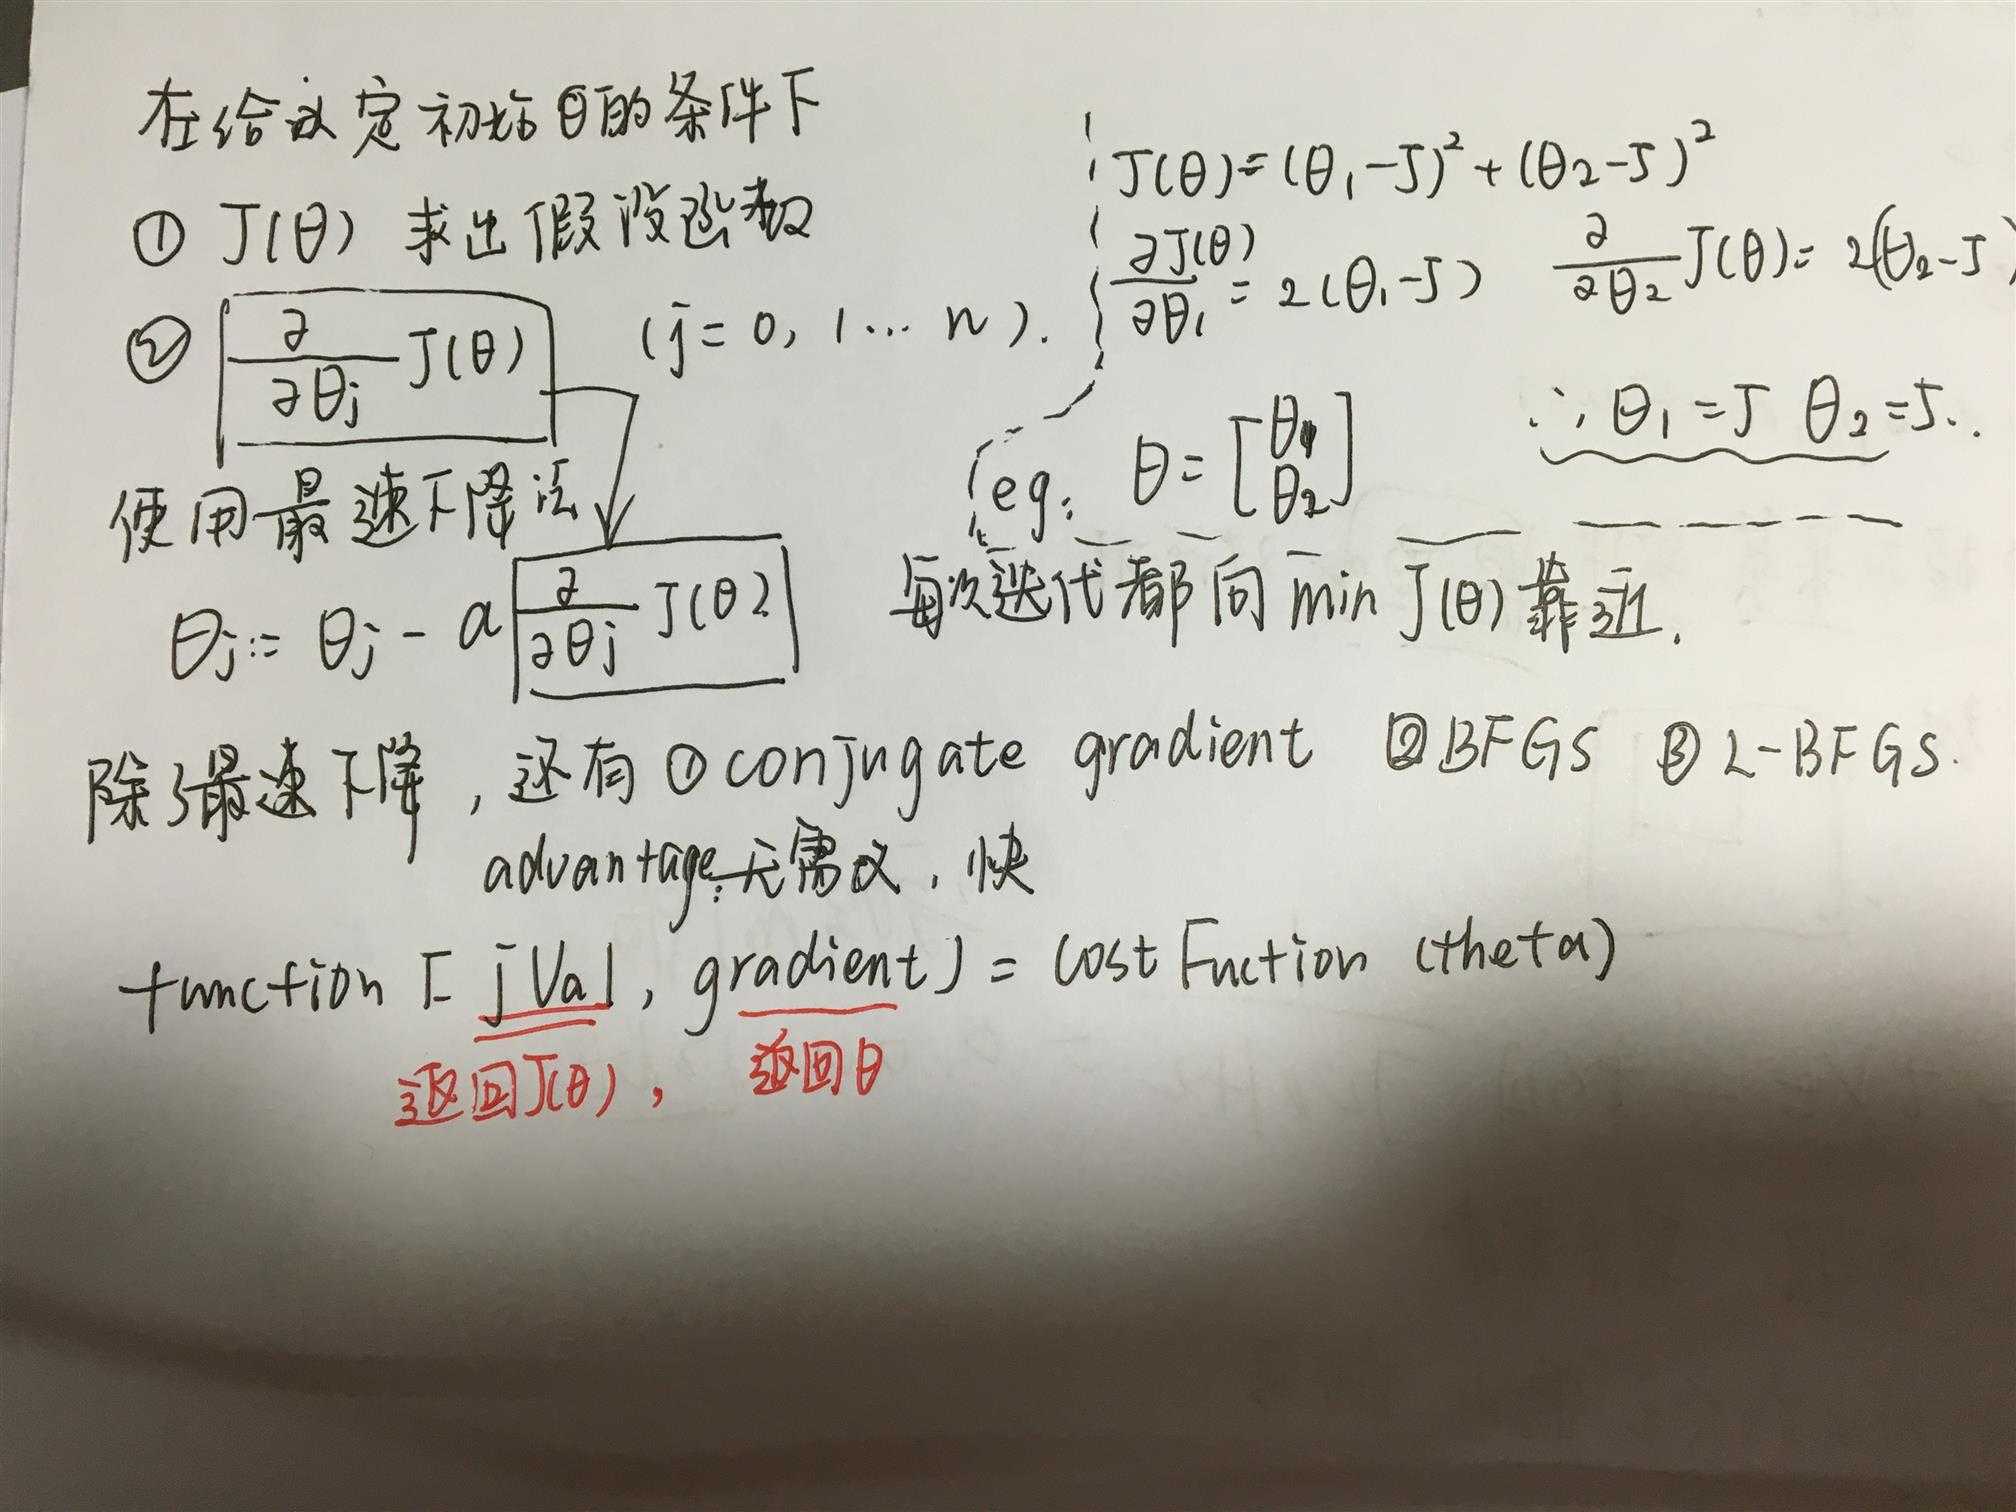 在给定初始θ的条件下
① J(θ) 求出假设函数
② ∂/∂θj J(θ) (j=0, 1... n).
使用最速下降法
θj := θj - α ∂/∂θj J(θ)
J(θ)=(θ₁-5)²+(θ₂-5)²
∂J(θ)/∂θ₁ = 2(θ₁-5) ∂/∂θ₂ J(θ)= 2(θ₂-5)
∴ θ₁=5 θ₂=5.
eg: θ=[θ₁ θ₂]
每次迭代都向min J(θ)靠近.
除了最速下降, 还有 ① conjugate gradient ② BFGS ③ L-BFGS.
advantage: 无需α, 快
function [jVal, gradient] = costFuction (theta)
返回J(θ), 返回θ